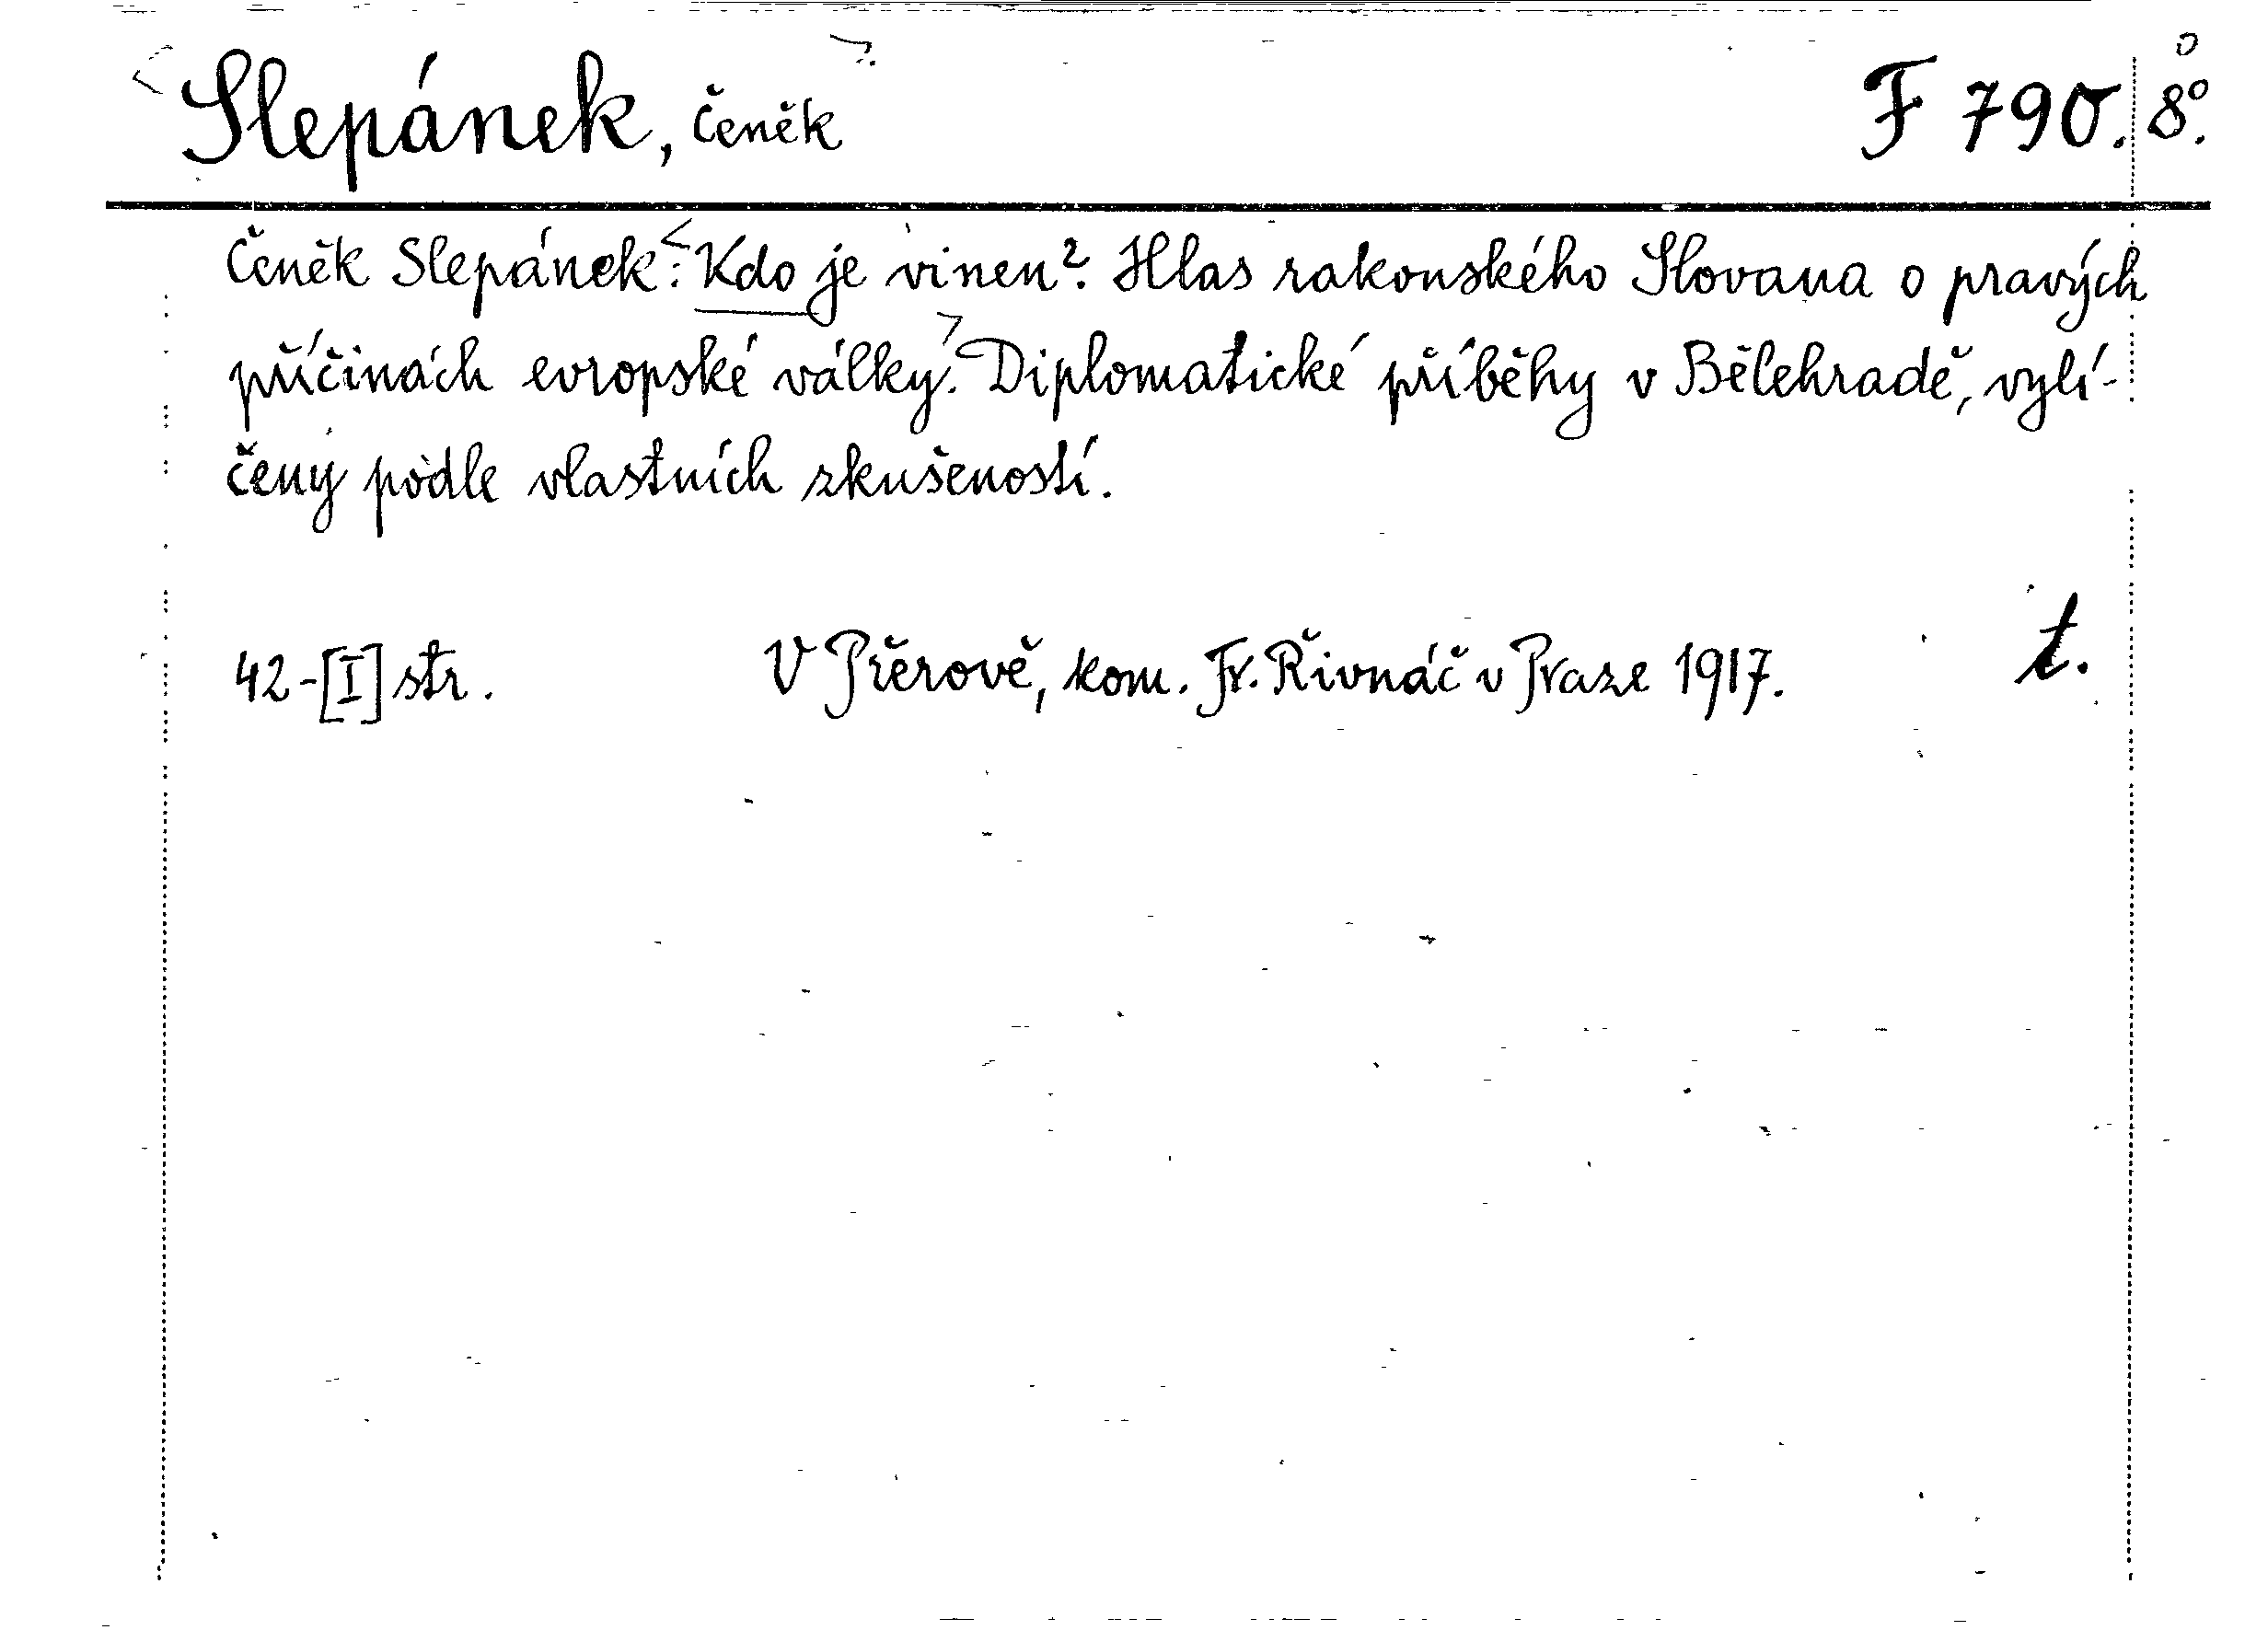 Slepánek, Čeněk F 790. 8°.
Čeněk Slepánek: Kdo je vinen? Hlas rakouského Slovana o pravých
příčinách evropské války. Diplomatické příběhy v Bělehradě, vylí-
čeny podle vlastních zkušeností.
42-[I] str. V Přerově, kom. Fr. Řivnáč v Praze 1917. t.